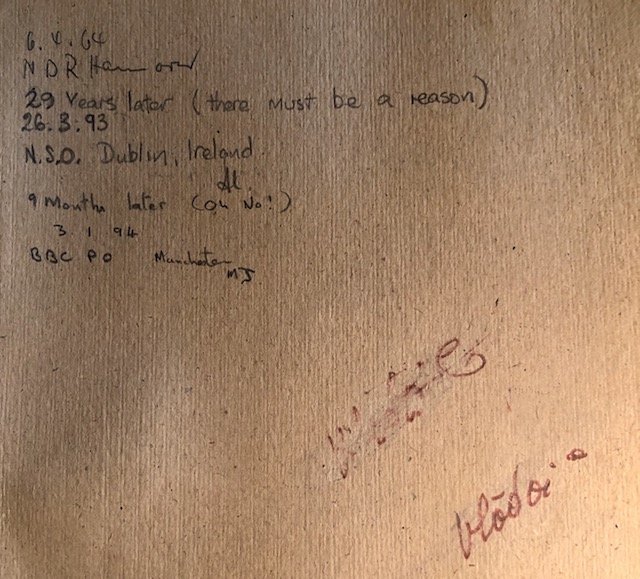 6. V. 64
NDR Hannover
29 Years later (there must be a reason)
26.3.93
N.S.O. Dublin, Ireland.
Al.
9 Months later (Oh No!)
3 1 94
BBC PO Manchester
MJ